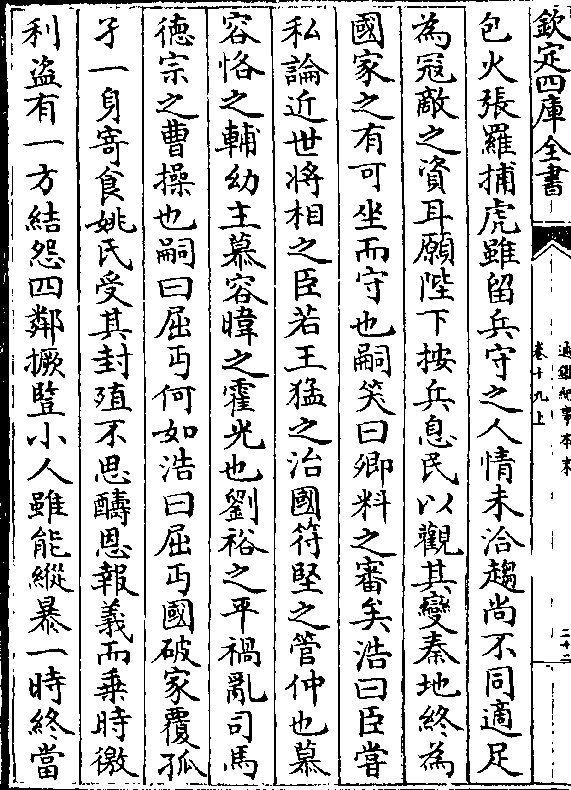 欽定四庫全書
通鑑紀事本末
卷十九上
二十二
包火張羅捕虎雖留兵守之人情未洽趨尚不同適足
為冦敵之資耳願陛下按兵息民以觀其變秦地終為
國家之有可坐而守也嗣笑曰卿料之審矣浩曰臣嘗
私論近世將相之臣若王猛之治國符堅之管仲也慕
容恪之輔幼主慕容暐之霍光也劉裕之平禍亂司馬
德宗之曹操也嗣曰屈丐何如浩曰屈丐國破家覆孤
孑一身寄食姚氏受其封殖不思醻恩報義而乗時徼
利盜有一方結怨四鄰撅豎小人雖能縱暴一時終當